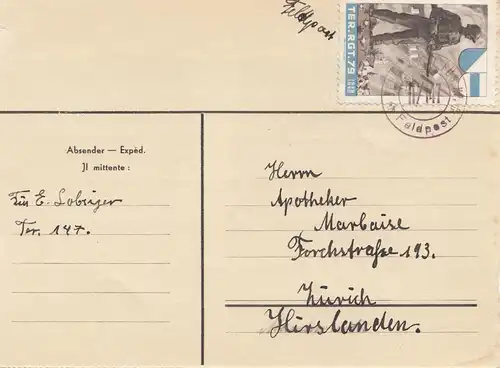 Feldpost
TER. RGT. 79
Feldpost
Absender — Expéd.
Il mittente :
Füs E. Lobsiger
Ter. 147.
Herrn
Apotheker
Marbaise
Forchstraße 193.
Zürich
Hirslanden.